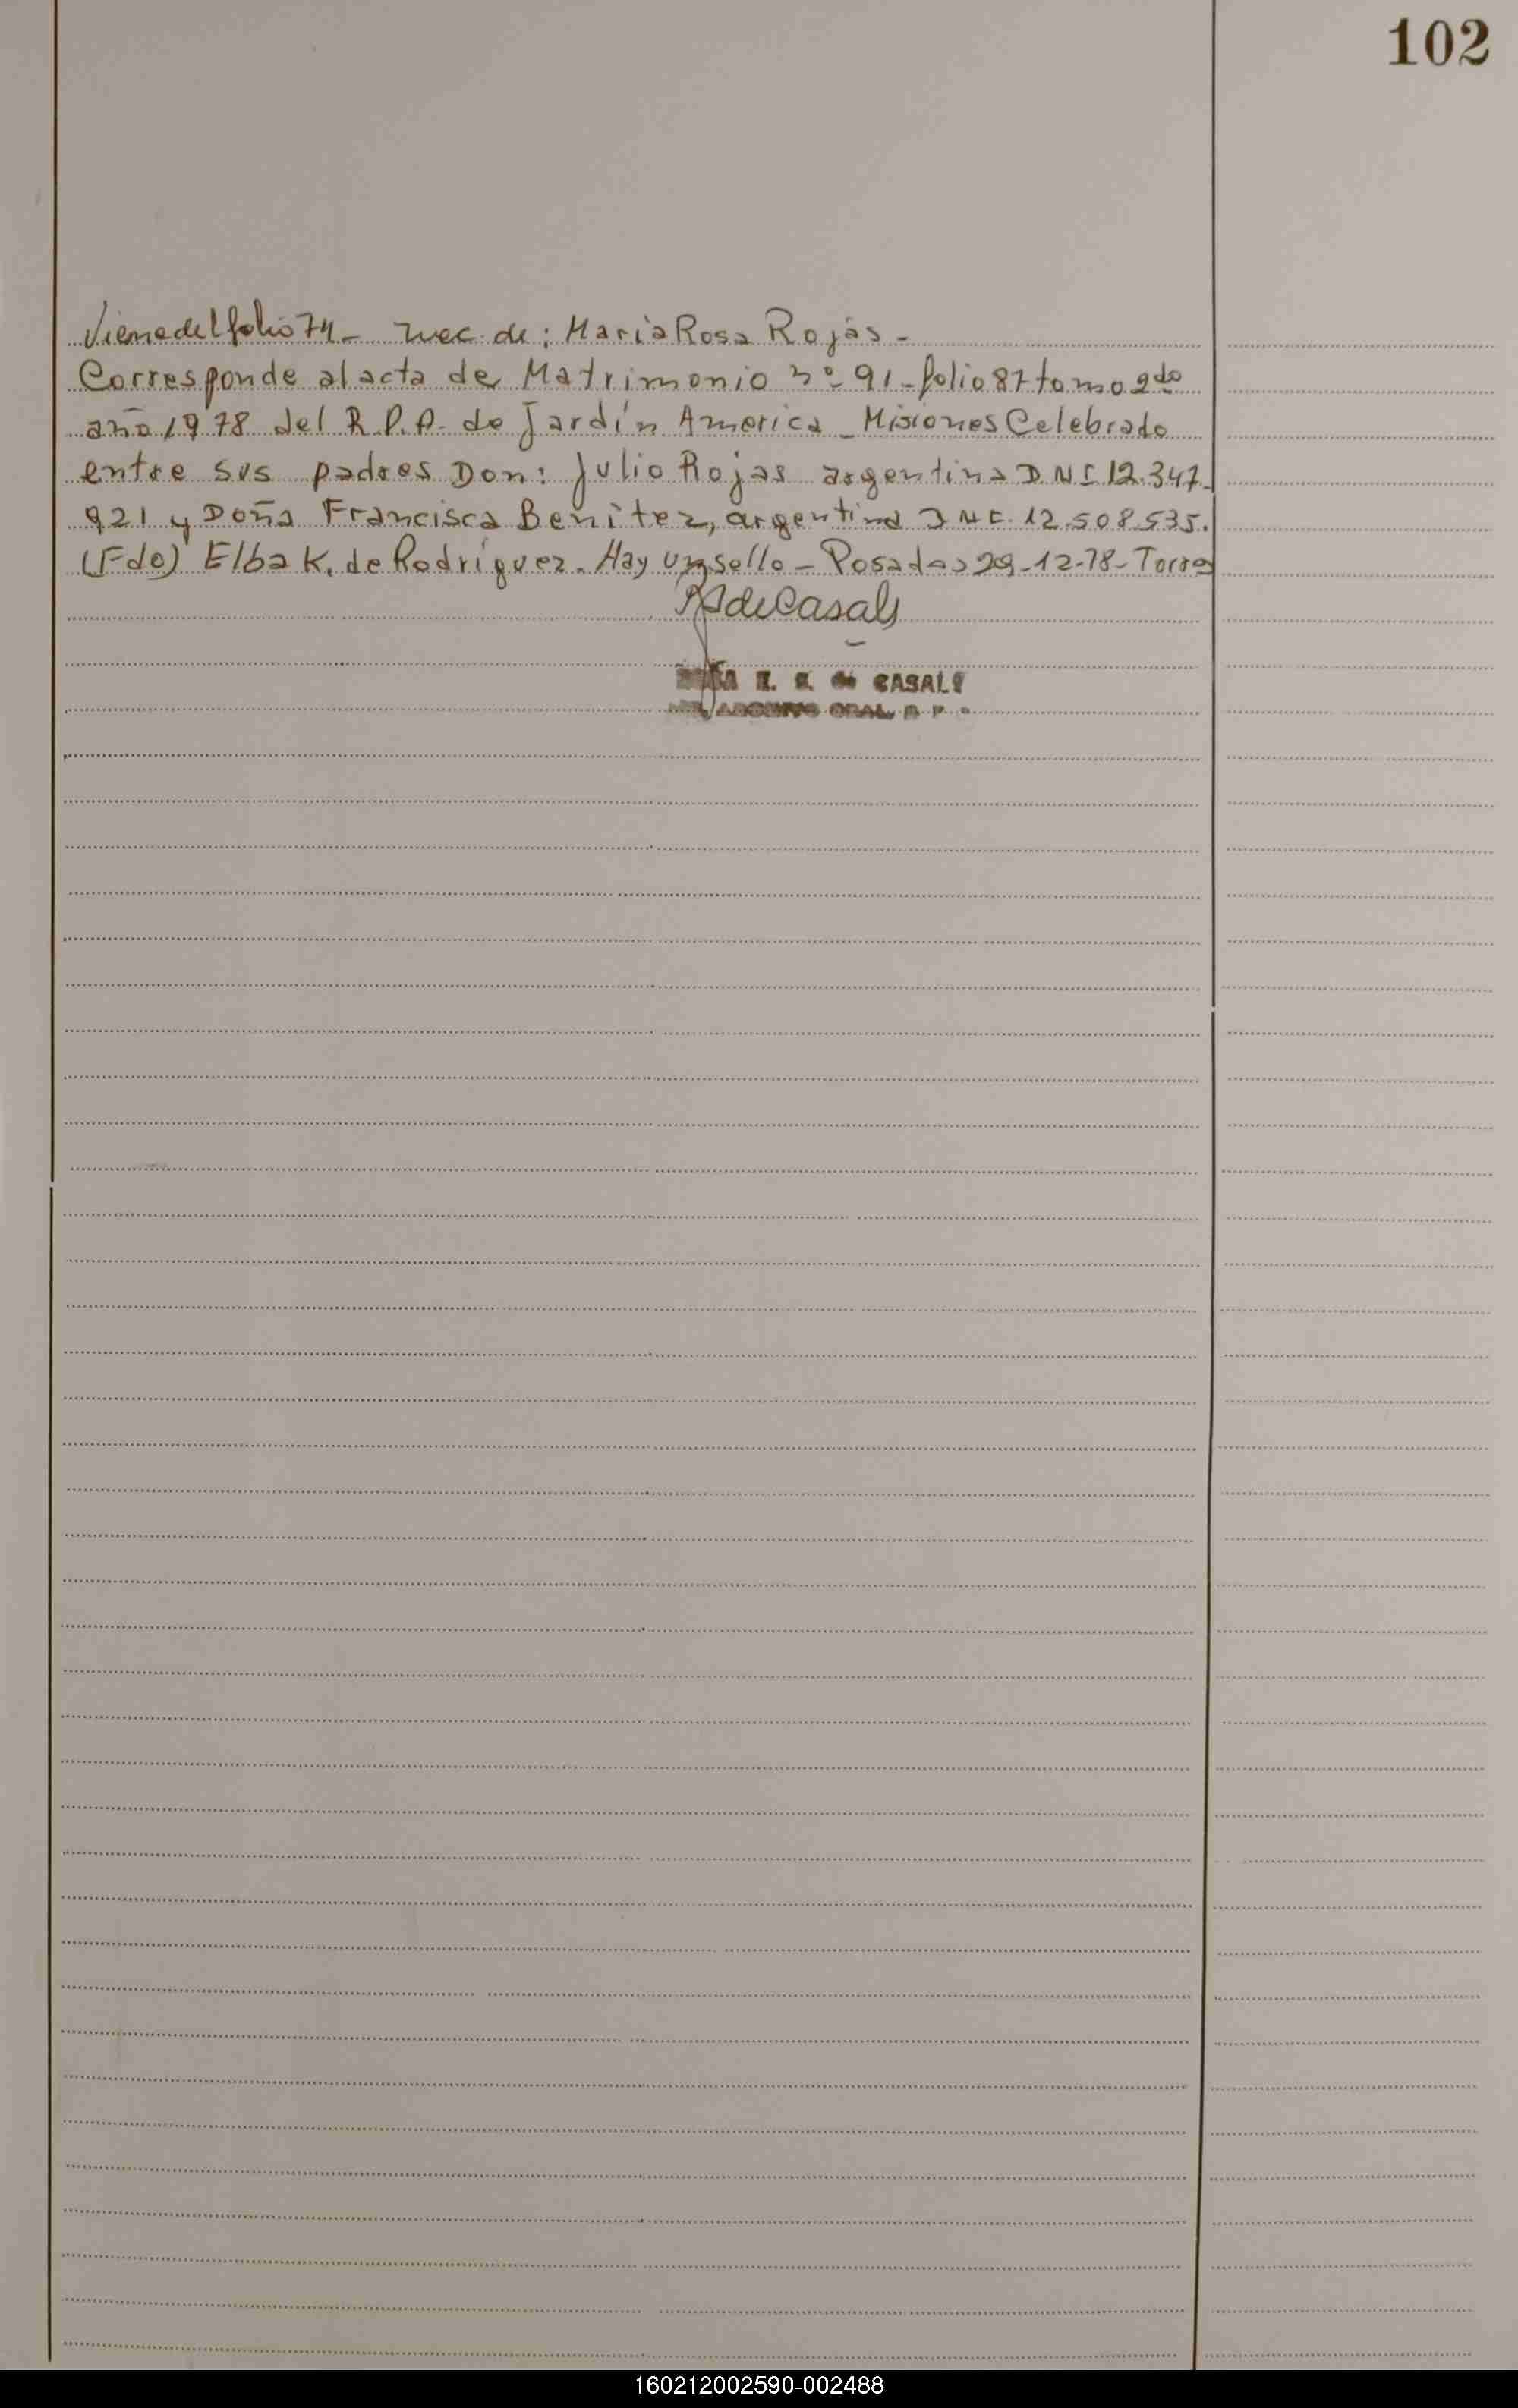 102
Viene del folio 74 - nac. de: Maria Rosa Rojas -
Corresponde al acta de Matrimonio nº 91 - folio 87 tomo 2do
año 1978 del R.P.A. de Jardín America - Misiones Celebrado
entre sus padres Don: Julio Rojas argentina DNI 12.347.
921 y Doña Francisca Benitez, argentina DNI. 12.508.535.
(Fdo) Elba K. de Rodríguez. Hay un sello - Posadas 29-12-78 - Torres
de Casals
de CASALS
160212002590-002488